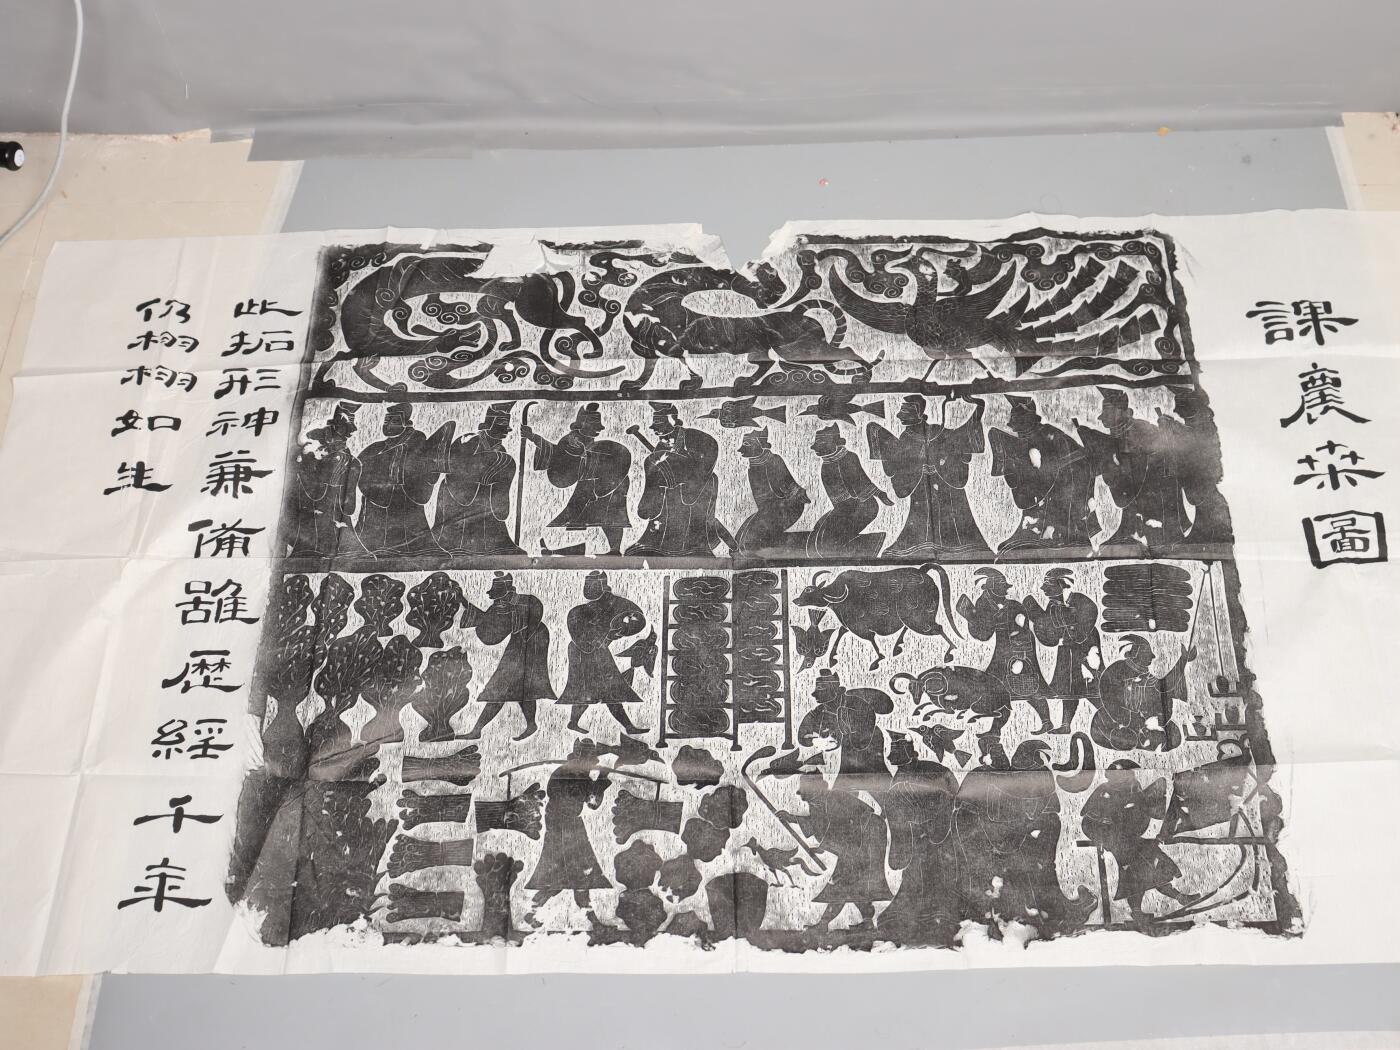 課農桒圖
此拓形神兼備雖歷經千年
仍栩栩如生